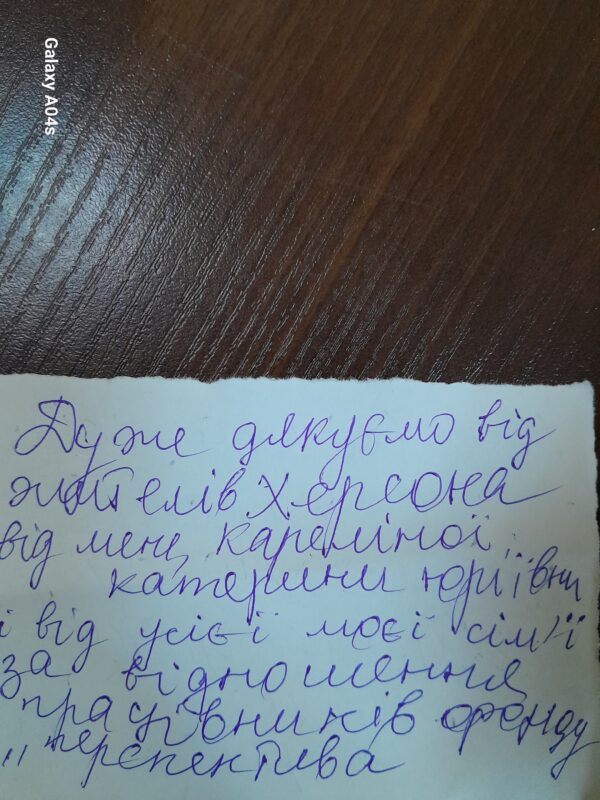 Galaxy A04s
Дуже дякуємо від
жителів Херсона
від мене, Кареліної
катерини юріївни
і від усієї моєї сім'ї
за відношення
працівників фонду
„перспектива